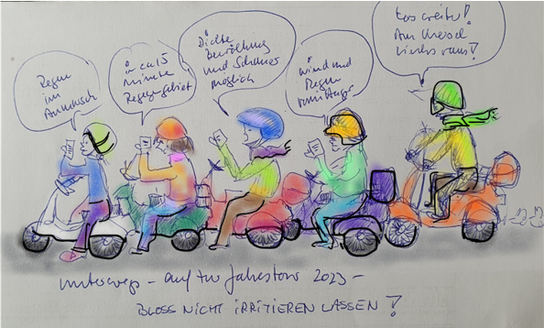 Regen
im
Anmarsch
in ca 15
Minuten
Regengebiet
Dichte
Bewölkung
und Schauer
möglich
Wind und
Regen
vormittags
Los weiter!
Am Kreisel
links raus!
unterwegs - auf der Jahrestour 2023 -
BLOSS NICHT IRRITIEREN LASSEN!